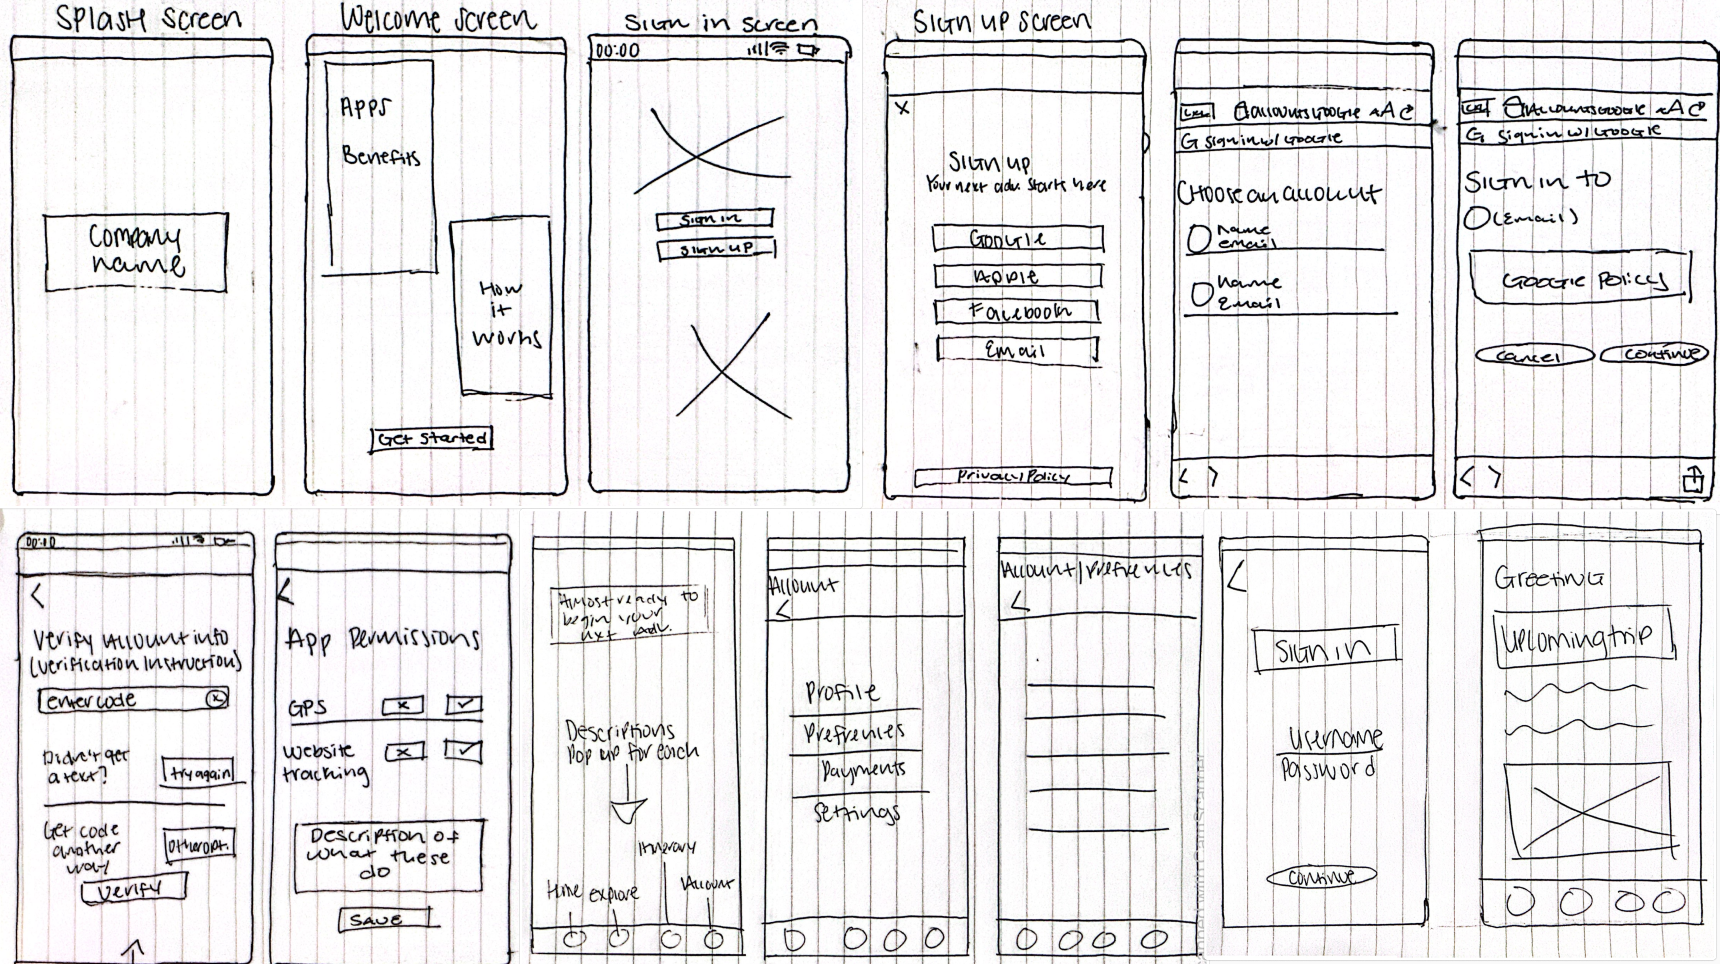 Splash Screen
Company
name
Welcome Screen
Apps
Benefits
How
it
works
Get Started
Sign in screen
00:00
Sign in
Sign up
Sign up screen
X
Sign up
Your next adv. starts here
Google
Apple
Facebook
Email
Privacy Policy
accountsgoogle AA
G sign in w/ Google
Choose an account
name
email
name
Email
< >
Accountsgoogle AA
G sign in w/ Google
Sign in to
(Email)
Google Policy
cancel
continue
< >
00:00
<
Verify account info
(verification instruction)
enter code
x
Didn't get
a text?
try again
Get code
another
way
other opt.
Verify
<
App Permissions
GPS
x
Website
tracking
x
Description of
what these
do
Save
Almost ready to
begin your
next adv.
Descriptions
Pop up for each
Itinerary
Home
explore
Account
Account
<
Profile
Prefrences
Payments
Settings
Account/Prefrences
<
<
Sign in
Username
Password
continue
Greeting
Upcoming trip